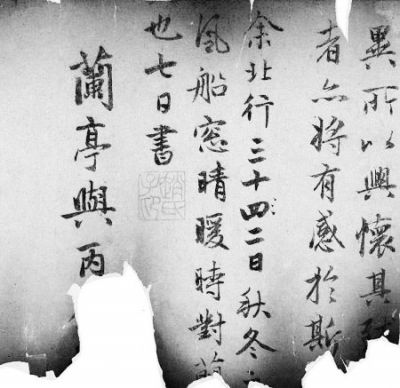 異所以興懷其
者亦將有感於斯
余北行三十四二日秋冬
風船窓晴暖時對
也七日書
趙氏子昂
蘭亭與丙